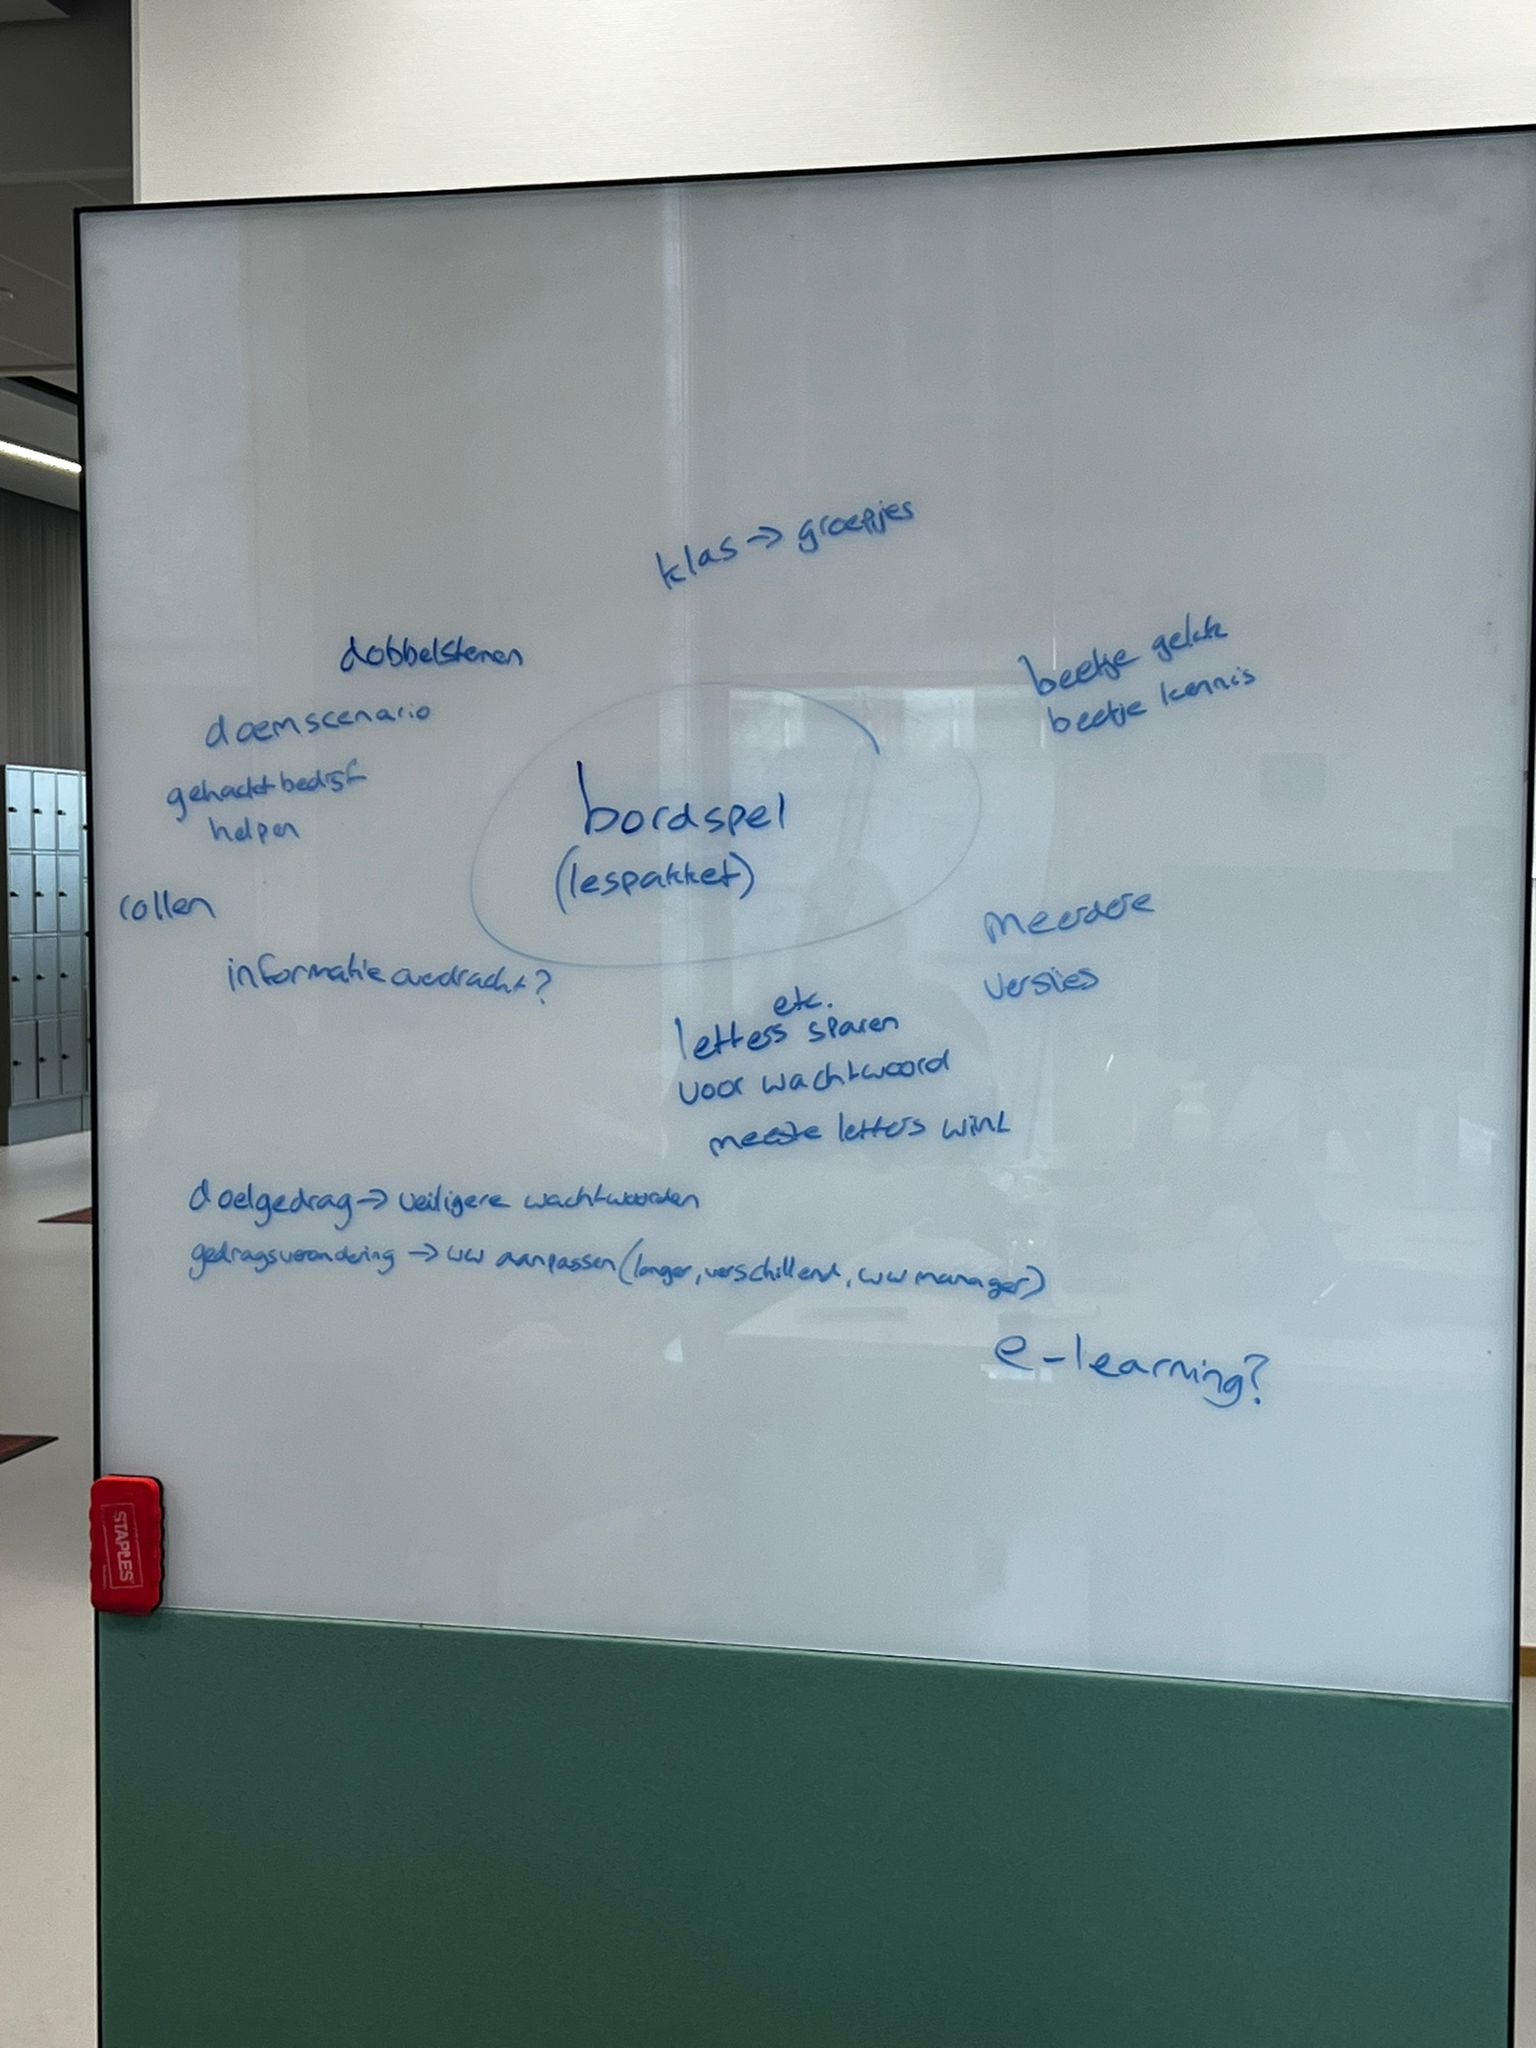 klas → groepjes
dobbelstenen
beetje geluk
beetje kennis
doemscenario
gehackt bedrijf
helpen
bordspel
(lespakket)
rollen
meerdere
versies
informatieoverdracht?
etc.
letters sparen
voor wachtwoord
meeste letters wint
doelgedrag → veiligere wachtwoorden
gedragsverandering → ww aanpassen (langer, verschillend, ww manager)
e-learning?
STAPLES